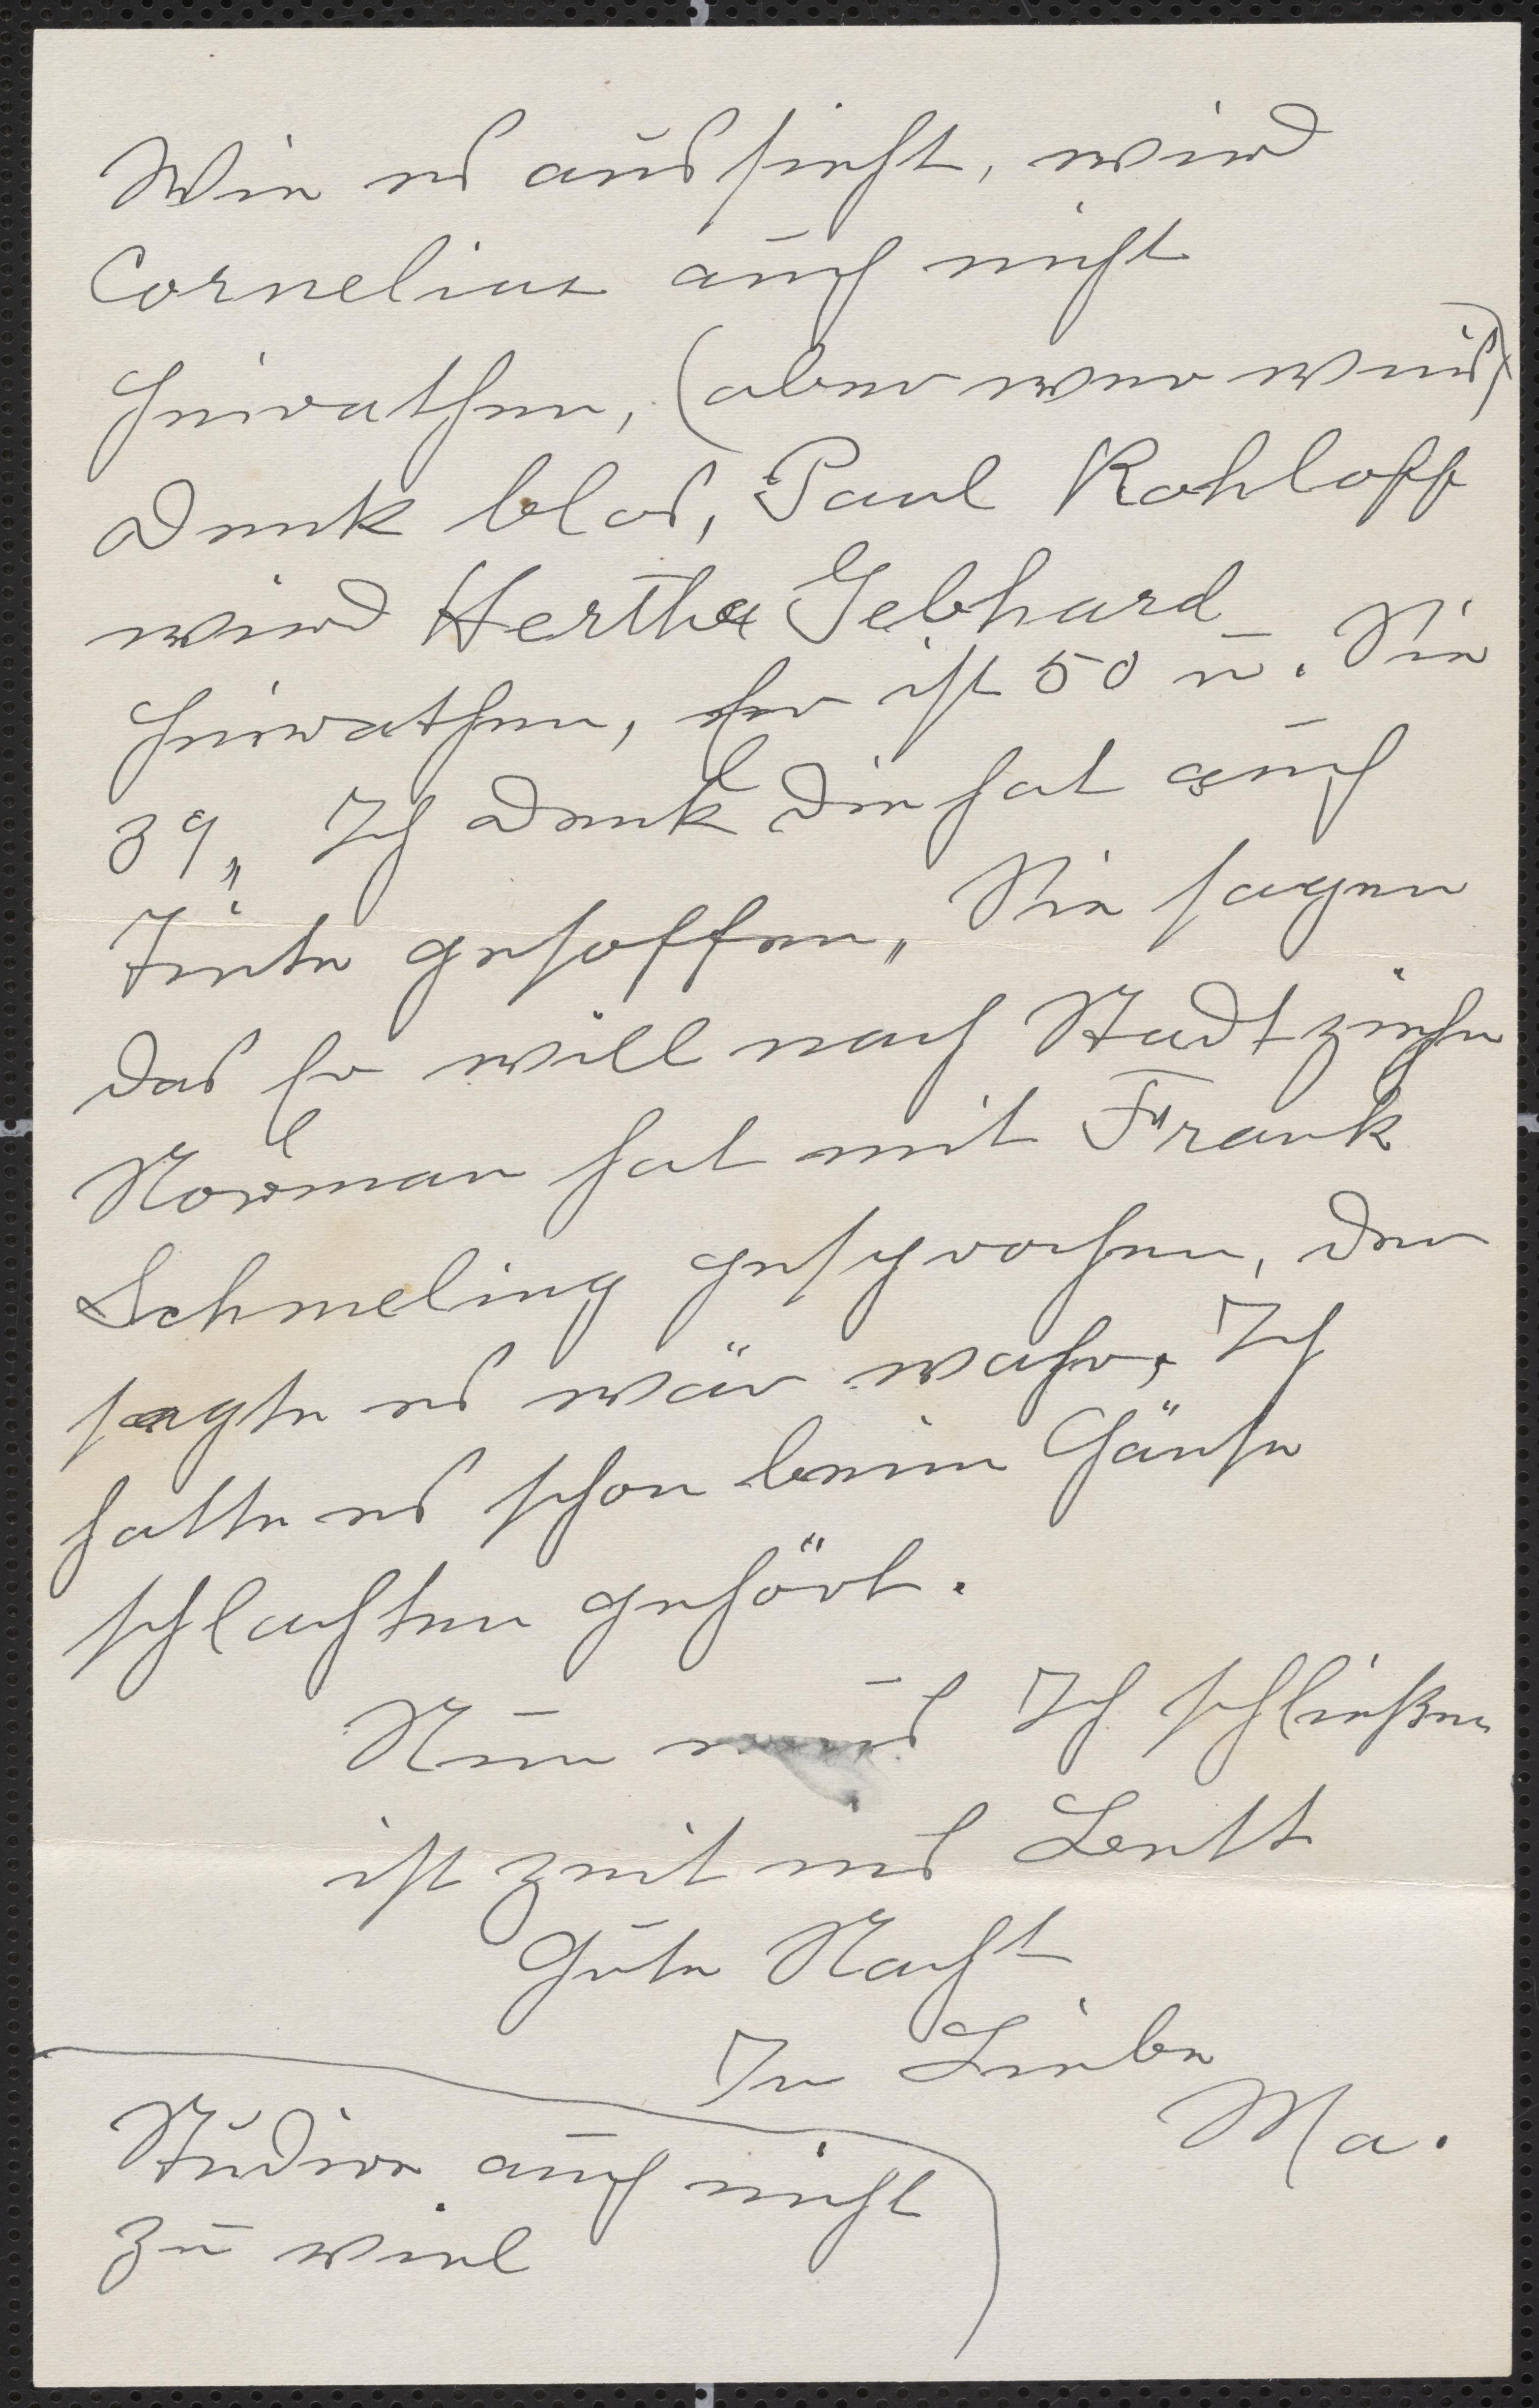 Wie es aussieht, wird
Cornelius auch nicht
heirathen, (aber wer weis)
Denk blos, Paul Rohloff
wird Hertha Gebhard
heirathen, Er ist 50 u. Sie
39„ Ich denk die hat auch
Tinte gesoffen„ Sie sagen
das Er will nach Stadt ziehn
Norman hat mit Frank
Schmeling gesprochen, der
sagte es wär wahr. Ich
hatte es schon beim Gänse
schlachten gehört.
Nun mus Ich schließen
ist zeit ins Bett
Gute Nacht
In Liebe
Ma.
Studire auch nicht
zu viel